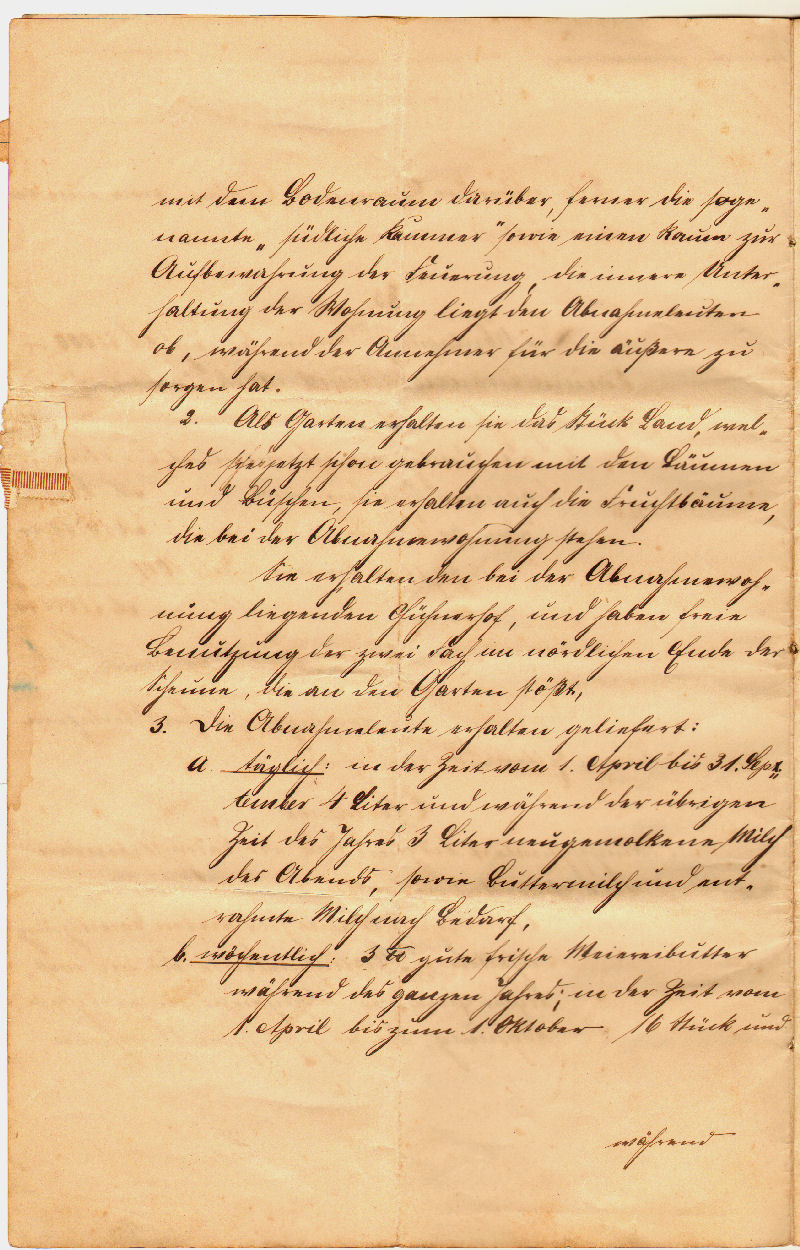 mit dem Bodenraum darüber, ferner die soge„
nannte „südliche Kammer" sowie einen Raum zur
Aufbewahrung der Feuerung, die innere Unter„
haltung der Wohnung liegt den Abnahmeleuten
ob, während der Annehmer für die äußere zu
sorgen hat.
2. Als Garten erhalten sie das Stück Land, wel„
ches sie jetzt schon gebrauchen mit den Bäumen
und Büschen, sie erhalten auch die Fruchtbäume,
die bei der Abnahmewohnung stehen.
Sie erhalten den bei der Abnahmewoh„
nung liegenden Hühnerhof, und haben freie
Benutzung der zwei Fach im nördlichen Ende der
Scheune, die an den Garten stößt,
3. Die Abnahmeleute erhalten geliefert:
a. täglich: in der Zeit vom 1. April bis 31. Sep„
tember 4 Liter und während der übrigen
Zeit des Jahres 3 Liter neugemolkene Milch
des Abends, sowie Buttermilch und ent„
rahmte Milch nach Bedarf,
b. wöchentlich: 3 ℔ gute frische Meiereibutter
während des ganzen Jahres; in der Zeit vom
1. April bis zum 1. Oktober 16 Stück und
während